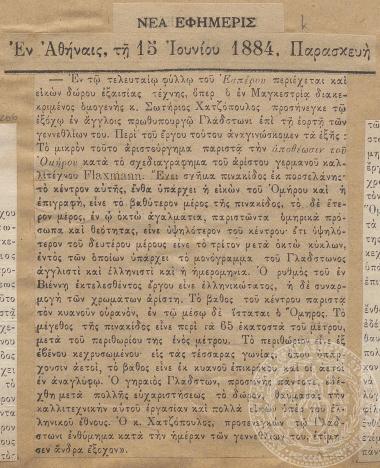 ΝΕΑ ΕΦΗΜΕΡΙΣ
Ἐν Ἀθήναις, τῇ 15 Ἰουνίου 1884, Παρασκευὴ
— Ἐν τῷ τελευταίῳ φύλλῳ τοῦ Ἑσπέρου περιέχεται καὶ
εἰκὼν δώρου ἐξαισίας τέχνης, ὅπερ ὁ ἐν Μαγκεστρίᾳ διακε-
κριμένος ὁμογενὴς κ. Σωτήριος Χατζόπουλος προσήνεγκε τῷ
ἐξόχῳ ἐν ἄγγλοις πρωθυπουργῷ Γλάδστωνι ἐπὶ τῇ ἑορτῇ τῶν
γεννεθλίων του. Περὶ τοῦ ἔργου τούτου ἀναγινώσκομεν τὰ ἑξῆς :
Τὸ μικρὸν τοῦτο ἀριστούργημα παριστᾷ τὴν ἀποθέωσιν τοῦ
Ὁμήρου κατὰ τὸ σχεδιαγράφημα τοῦ ἀρίστου γερμανοῦ καλ-
λιτέχνου Flaxmann. Ἔχει σχῆμα πινακίδος ἐκ πορσελάνης·
τὸ κέντρον αὐτῆς, ἔνθα ὑπάρχει ἡ εἰκὼν τοῦ Ὁμήρου καὶ ἡ
ἐπιγραφή, εἶνε τὸ βαθύτερον μέρος τῆς πινακίδος, τὸ δὲ ἕτε-
ρον μέρος, ἐν ᾧ ὀκτὼ ἀγαλματια, παριστῶντα ὁμηρικὰ πρό-
σωπα καὶ θεότητας, εἶνε ὑψηλότερον τοῦ κέντρου· ἔτι ὑψηλό-
τερον τοῦ δευτέρου μέρους εἶνε τὸ τρίτον μετὰ ὀκτὼ κύκλων,
ἐντὸς τῶν ὁποίων ὑπάρχει τὸ μονόγραμμα τοῦ Γλάδστωνος
ἀγγλιστὶ καὶ ἑλληνιστὶ καὶ ἡ ἡμερομηνία. Ὁ ρυθμὸς τοῦ ἐν
Βιέννῃ ἐκτελεσθέντος ἔργου εἶνε ἑλληνικώτατος, ἡ δὲ συναρ-
μογὴ τῶν χρωμάτων ἀρίστη. Τὸ βάθος τοῦ κέντρου παριστᾷ
τὸν κυανοῦν οὐρανόν, ἐν τῷ μέσῳ δὲ ἵσταται ὁ Ὅμηρος. Τὸ
μέγεθος τῆς πινακίδος εἶνε περὶ τὰ 65 ἑκατοστὰ τοῦ μέτρου,
μετὰ τοῦ περιθωρίου της ἑνὸς μέτρου. Τὸ περιθώριον εἶνε ἐξ
ἐβένου κεχρυσωμένου· εἰς τὰς τέσσαρας γωνίας, ὅπου ὑπάρ-
χουσιν ἀετοί, τὸ βάθος εἶνε ἐκ κυανοῦ ἐπικρίου καὶ οἱ ἀετοὶ
ἐν ἀναγλύφῳ. Ὁ γηραιὸς Γλάδστων, προσηνὴς πάντοτε, ἐδέ-
χθη μετὰ πολλῆς εὐχαριστήσεως τὸ δῶρον, θαυμάσας τὴν
καλλιτεχνικὴν αὐτοῦ ἐργασίαν καὶ πολλὰ εἰπὼν ὑπὲρ τοῦ ἑλ-
ληνικοῦ ἔθνους. Ὁ κ. Χατζόπουλος, προσενεγκὼν τῷ Γλάδ-
στωνι ἐνθύμημα κατὰ τὴν ἡμέραν τῶν γεννεθλίων του, ἐτίμη-
σεν ἄνδρα ἔξοχον».